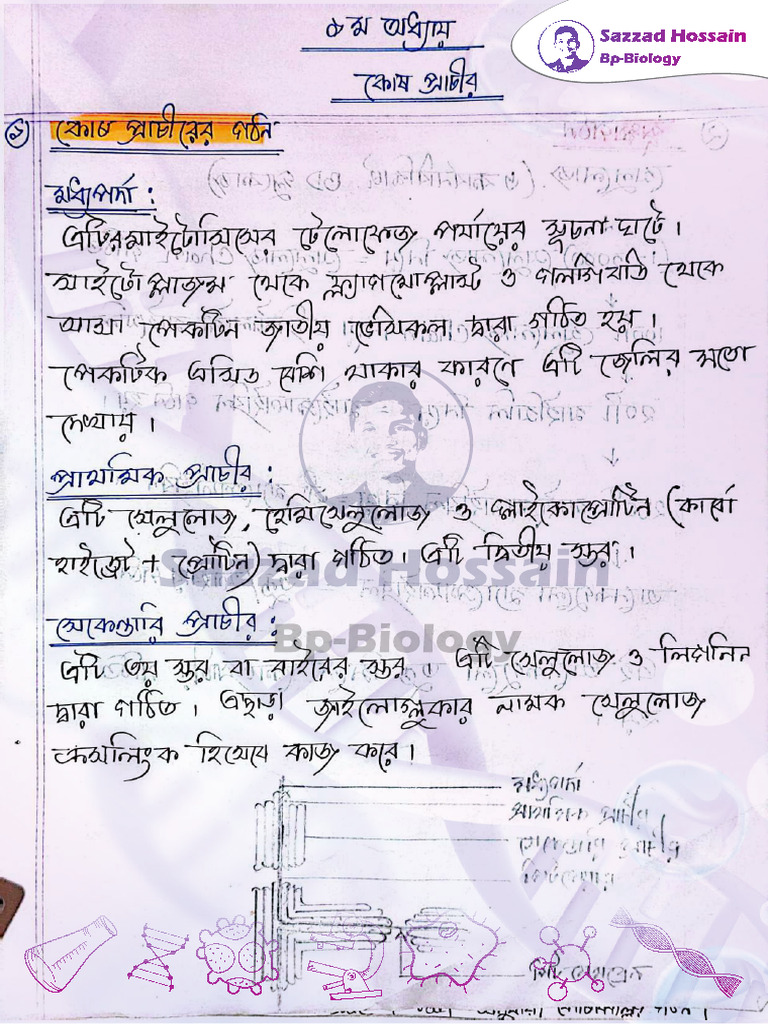 ৮ম অধ্যায়
Sazzad Hossain
Bp-Biology
কোষ প্রাচীর
১) কোষ প্রাচীরের গঠন
মধ্যপর্দা :
এটির মাইটোসিসের টেলোফেজ পর্যায়ের সূচনা ঘটে।
সাইটোপ্লাজম থেকে ফ্র্যাগমোপ্লাস্ট ও গলগিবডি থেকে
আসা পেকটিন জাতীয় ভেসিকল দ্বারা গঠিত হয়।
পেকটিক এসিড বেশি থাকার কারণে এটি জেলির মতো
দেখায়।
প্রাথমিক প্রাচীর :
এটি সেলুলোজ, হেমিসেলুলোজ ও গ্লাইকোপ্রোটিন (কার্বো
হাইড্রেট + প্রোটিন) দ্বারা গঠিত। এটি দ্বিতীয় স্তর।
Sazzad Hossain
সেকেন্ডারি প্রাচীর :
Bp-Biology
এটি ৩য় স্তর বা বাইরের স্তর এটি সেলুলোজ ও লিগনিন
দ্বারা গঠিত। এছাড়া জাইলোগ্লুকার নামক সেলুলোজ
ক্রসলিংক হিসেবে কাজ করে।
মধ্যপর্দা
প্রাথমিক প্রাচীর
সেকেন্ডারি প্রাচীর